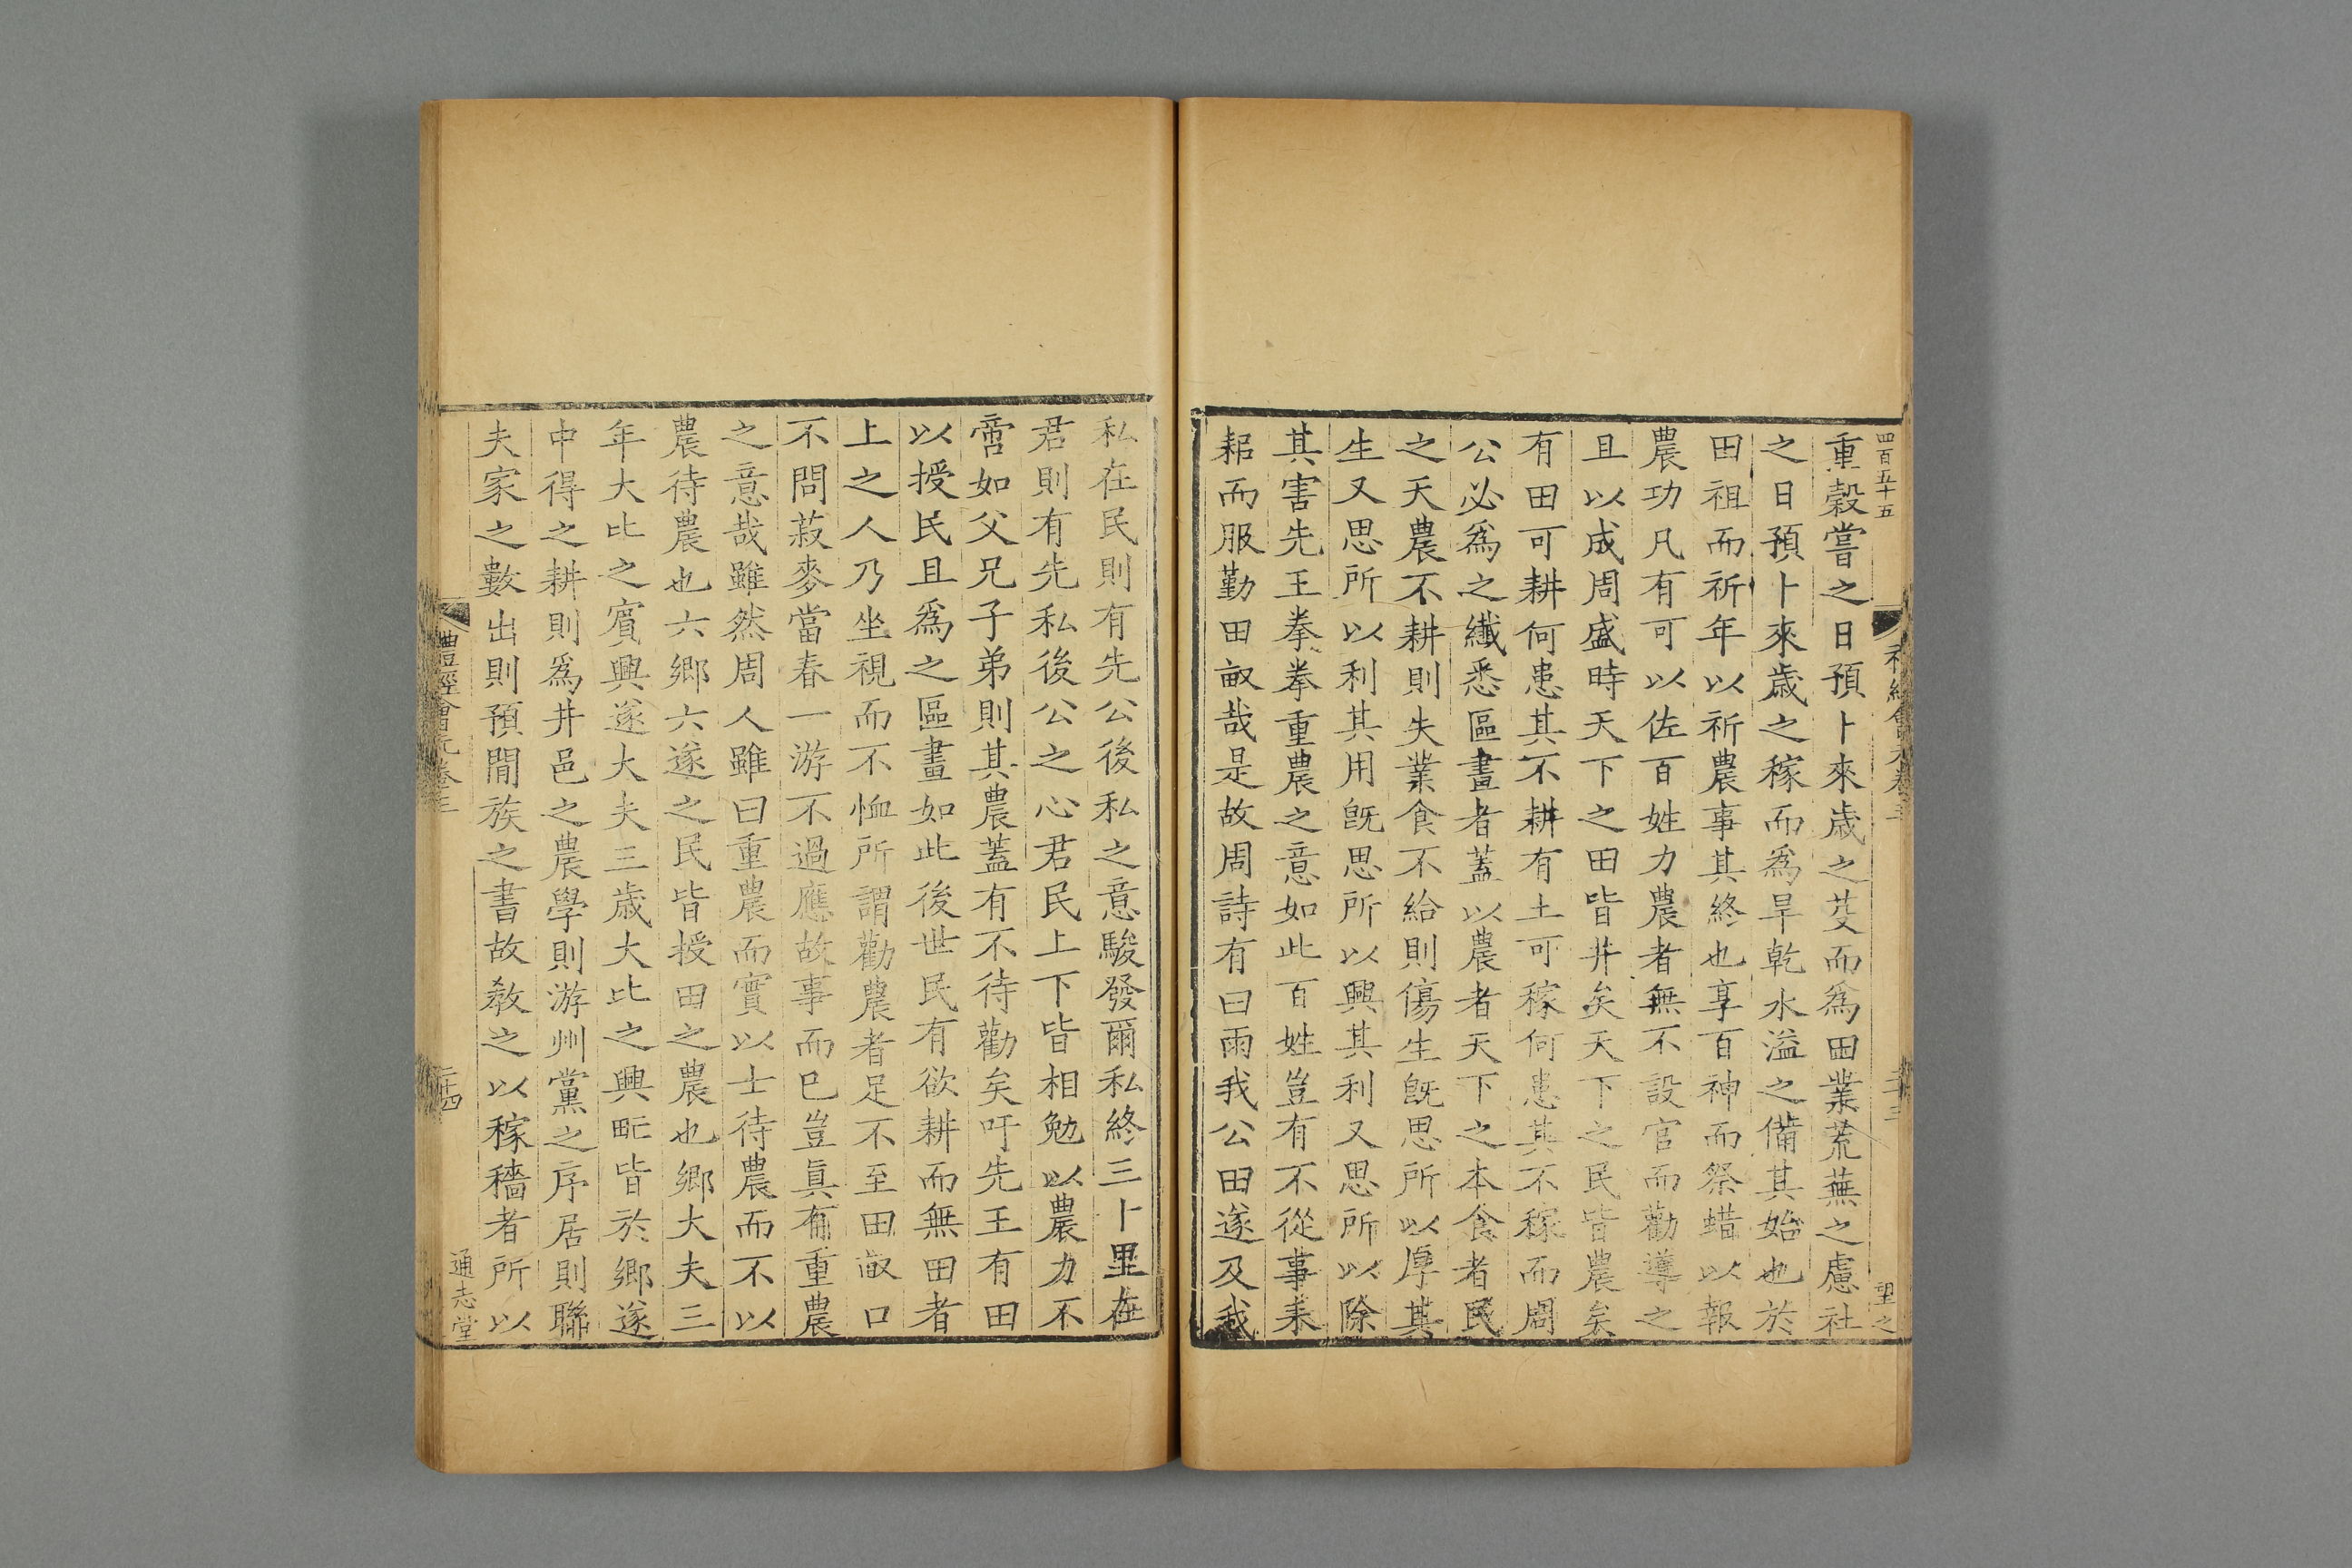 四百五十五
重穀嘗之日預卜來歲之芟而爲田業荒蕪之慮社
之日預卜來歲之稼而爲旱乾水溢之備其始也於
田祖而祈年以祈農事其終也享百神而祭蜡以報
農功凡有可以佐百姓力農者無不設官而勸導之
且以成周盛時天下之田皆井矣天下之民皆農矣
有田可耕何患其不耕有土可稼何患其不稼而周
公必爲之纖悉區畫者蓋以農者天下之本食者民
之天農不耕則失業食不給則傷生旣思所以厚其
生又思所以利其用旣思所以興其利又思所以除
其害先王拳拳重農之意如此百姓豈有不從事耒
耜而服勤田畝哉是故周詩有曰雨我公田遂及我
私在民則有先公後私之意駿發爾私終三十里在
君則有先私後公之心君民上下皆相勉以農力不
啻如父兄子弟則其農蓋有不待勸矣吁先王有田
以授民且爲之區畫如此後世民有欲耕而無田者
上之人乃坐視而不恤所謂勸農者足不至田畝口
不問菽麥當春一游不過應故事而已豈眞有重農
之意哉雖然周人雖曰重農而實以士待農而不以
農待農也六鄉六遂之民皆授田之農也鄉大夫三
年大比之賓興遂大夫三歲大比之興甿皆於鄉遂
中得之耕則爲井邑之農學則游州黨之序居則聯
夫家之數出則預閒族之書故敎之以稼穡者所以
禮經會元卷三
二十四
通志堂